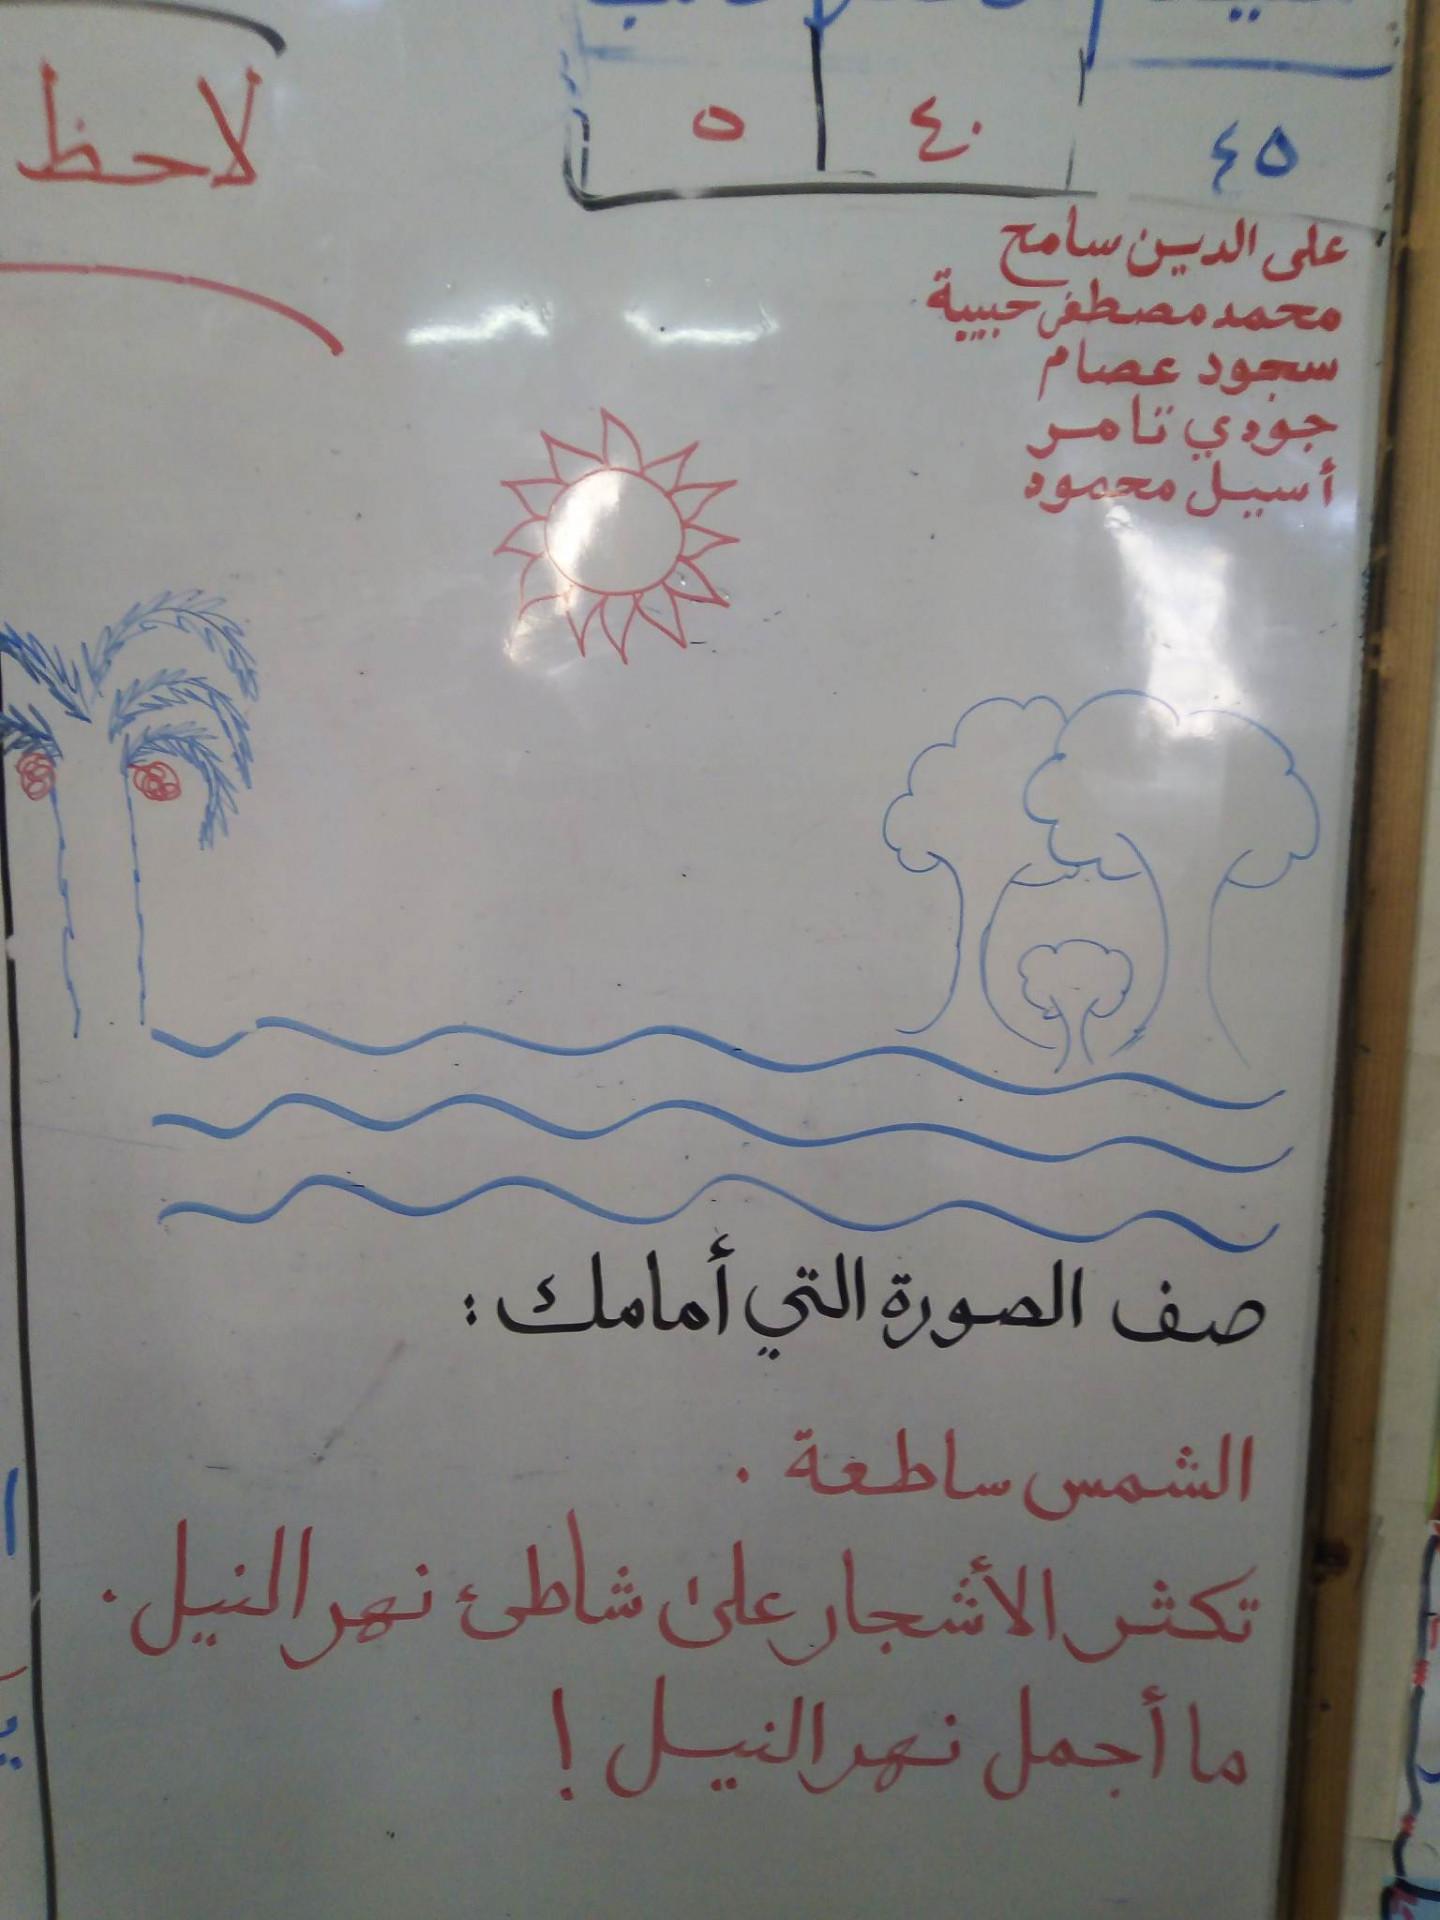 ٤٥ ٤٠ ٥
لاحظ
على الدين سامح
محمد مصطفى حبيبة
سجود عصام
جودي تامر
أسيل محمود
صف الصورة التي أمامك :
الشمس ساطعة .
تكثر الأشجار على شاطئ نهر النيل .
ما أجمل نهر النيل !